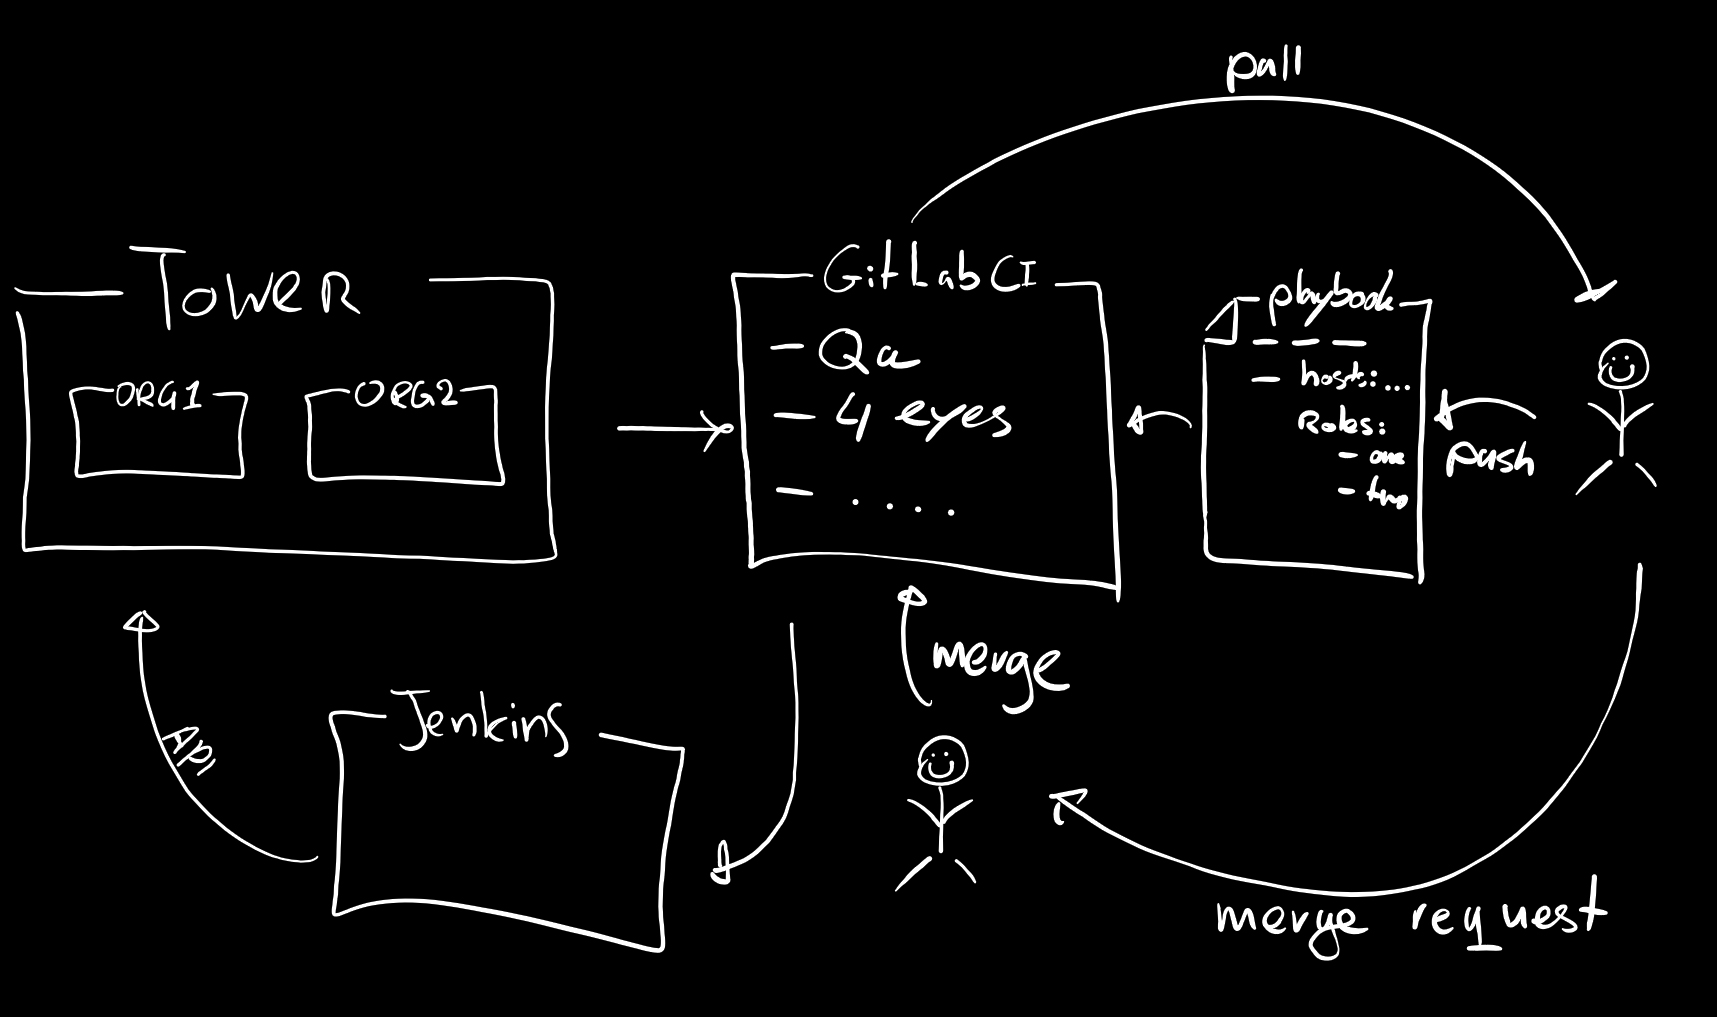 pull
Tower
ORG1
ORG2
GitLab CI
- Qa
- 4 eyes
- ....
playbook
- - -
- hosts:...
Roles:
- one
- two
push
merge
Jenkins
API
merge request